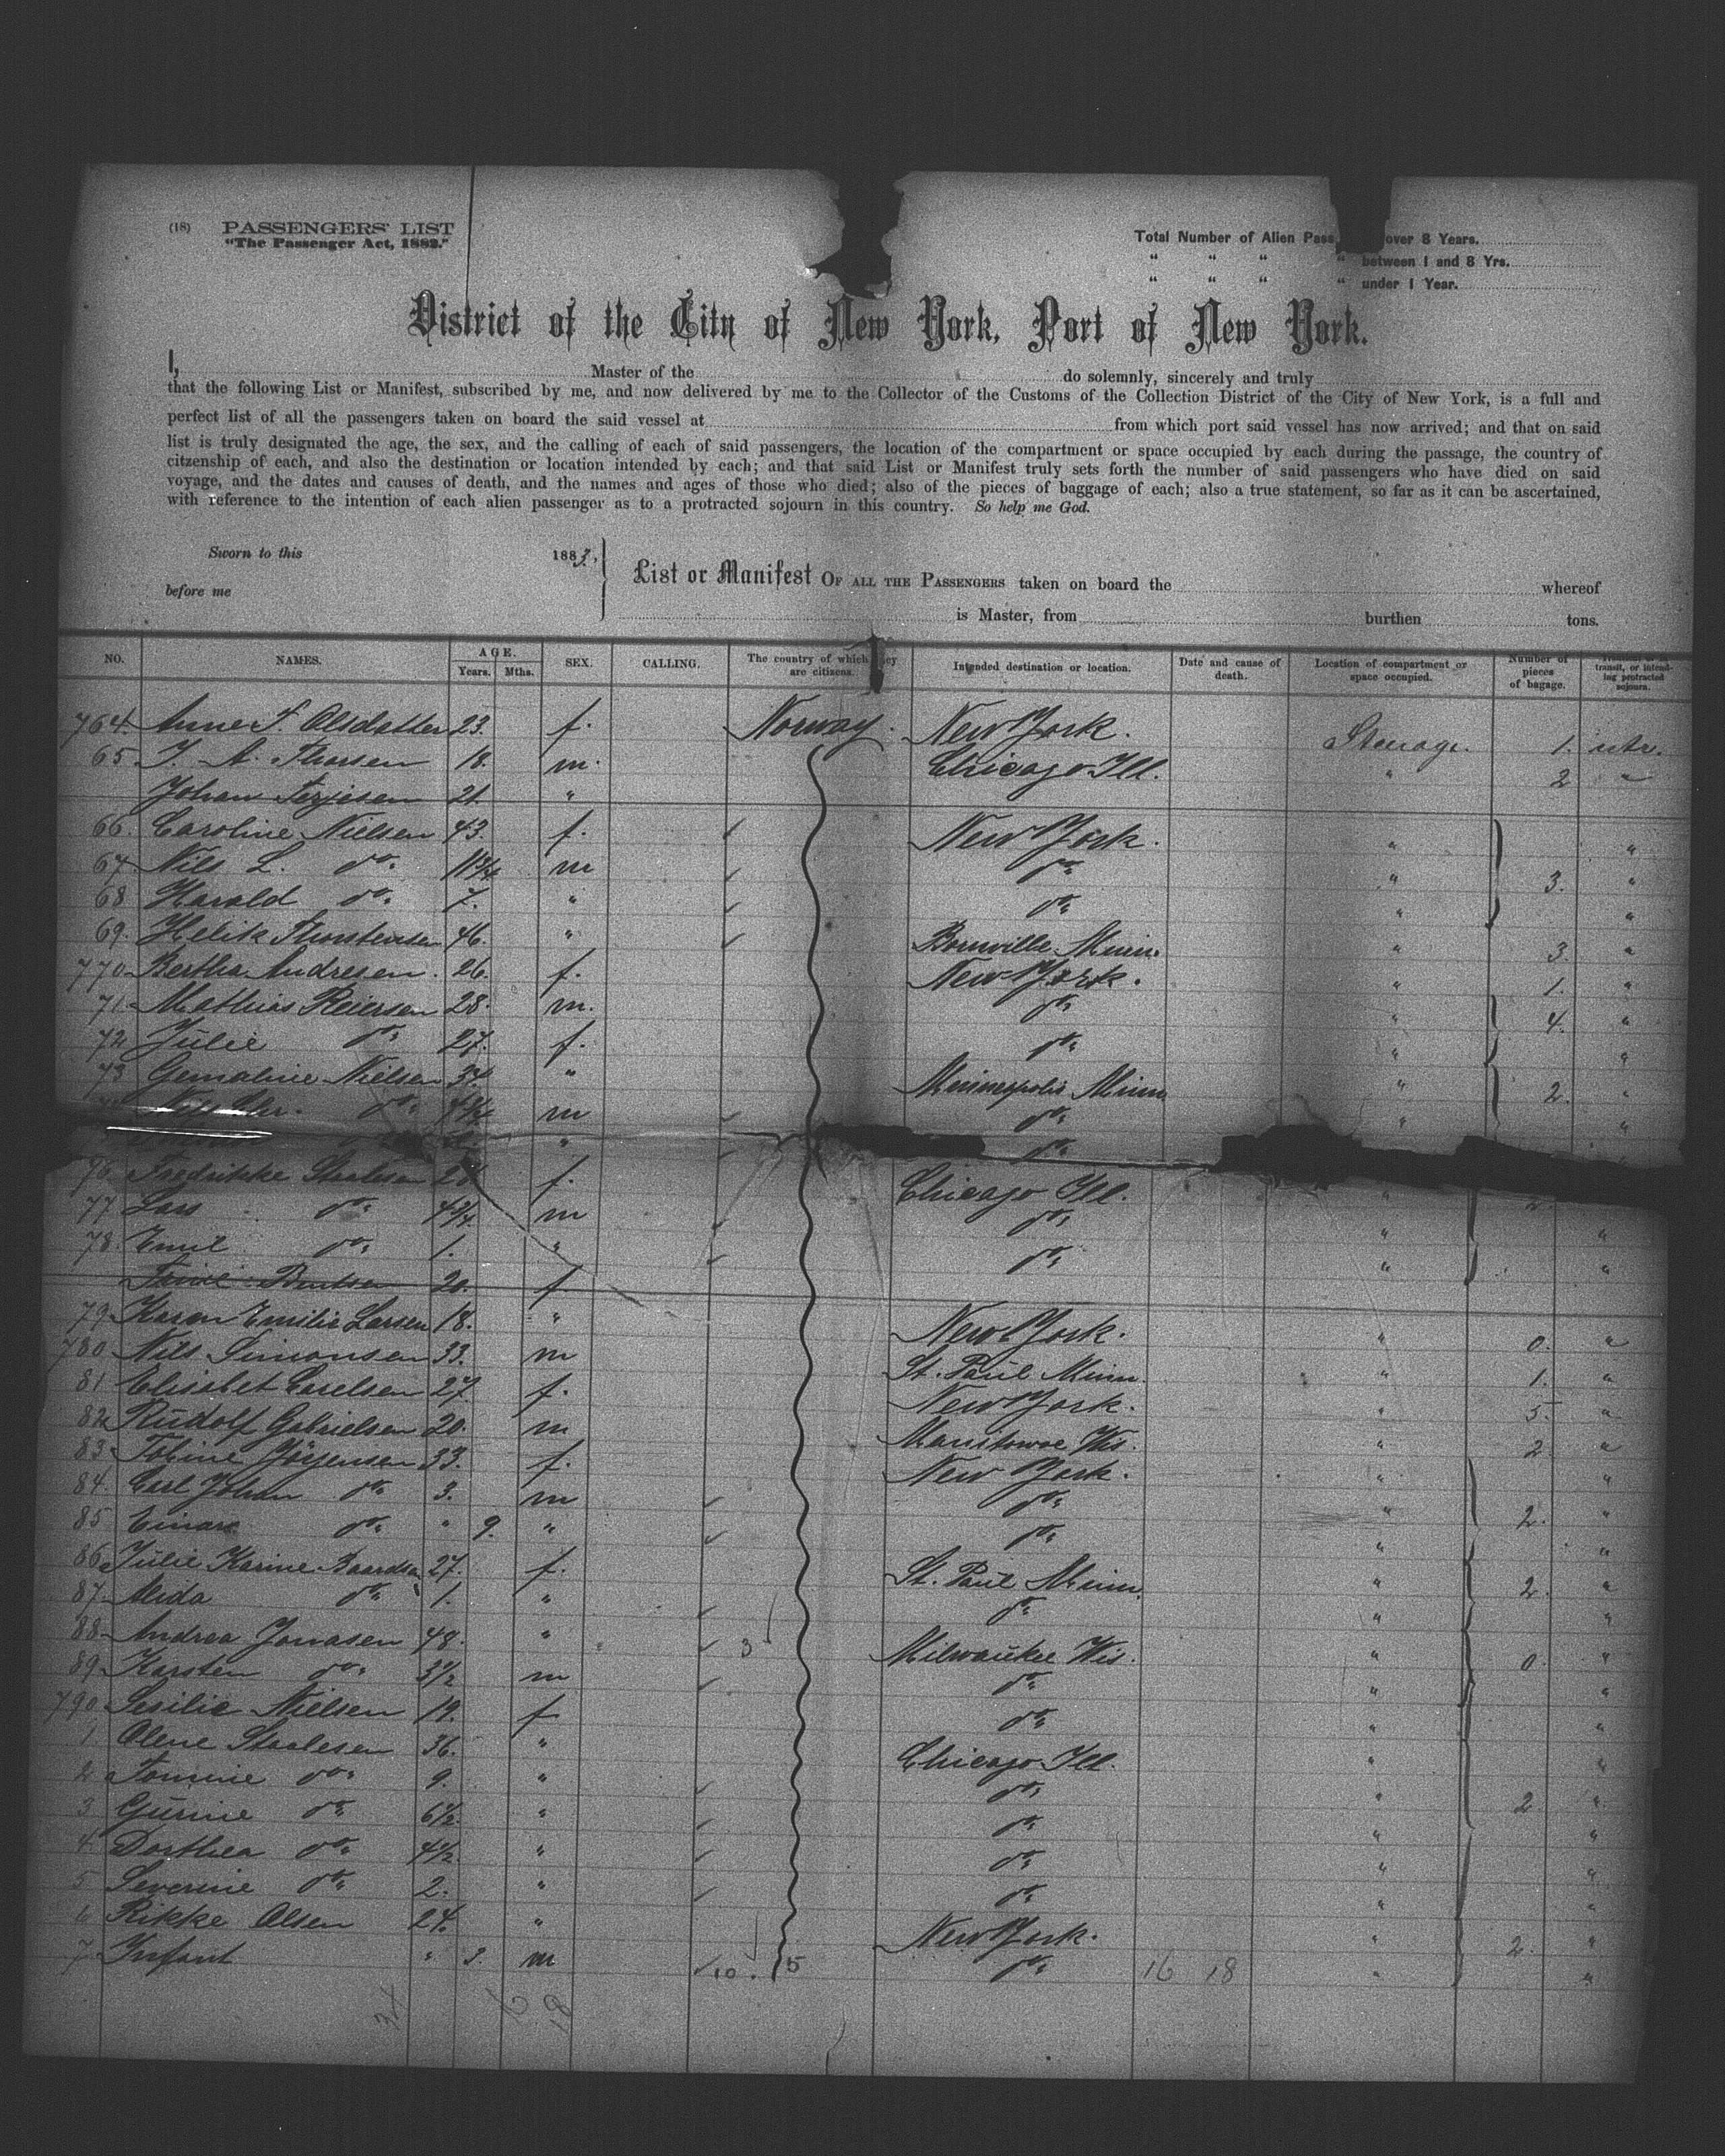 (18) PASSENGERS' LIST
"The Passenger Act, 1882."
Total Number of Alien Pass over 8 Years.
" " " " between 1 and 8 Yrs.
" " " " under 1 Year.
District of the City of New York, Port of New York.
I, Master of the do solemnly, sincerely and truly
that the following List or Manifest, subscribed by me, and now delivered by me to the Collector of the Customs of the Collection District of the City of New York, is a full and
perfect list of all the passengers taken on board the said vessel at from which port said vessel has now arrived; and that on said
list is truly designated the age, the sex, and the calling of each of said passengers, the location of the compartment or space occupied by each during the passage, the country of
citzenship of each, and also the destination or location intended by each; and that said List or Manifest truly sets forth the number of said passengers who have died on said
voyage, and the dates and causes of death, and the names and ages of those who died; also of the pieces of baggage of each; also a true statement, so far as it can be ascertained,
with reference to the intention of each alien passenger as to a protracted sojourn in this country. So help me God.
Sworn to this 1883.
before me
List or Manifest OF ALL THE PASSENGERS taken on board the whereof
is Master, from burthen tons.
NO. NAMES. AGE. Years. Mths. SEX. CALLING. The country of which they are citizens. Intended destination or location. Date and cause of death. Location of compartment or space occupied. Number of pieces of bagage. transit, or intending protracted sojourn.
764. Anne F. Olsdatter 23. f. Norway. New York. Steerage. 1.
65. T. A. Thorsen 18. m. Chicago Ill. " 2 "
Johan Terjesen 21. "
66. Caroline Nielsen 43. f. New York. " "
67. Nils L. do. 11 3/4 m do. " 3. "
68 Harald do. 7. " do. " "
69. Thorstensen 46. " Minn. " 3. "
770 Bertha Andresen. 26. f. New York. " 1. "
71. Mathias Reiersen 28. m. do. " 4. "
72 Julie do. 27. f. do. " "
73 Nielsen 34. " Minneapolis Minn " 2. "
do. m do. " "
" do.
76. Fredrikke Staalesen f. Chicago Ill. "
77 Lars do. 4 3/4. m do. " "
78. Emil do. 1. " do. " "
Bentsen 20. f.
79. Karen Emilie Larsen 18. " New York. " 0. "
780 Nils Simonsen 33. m St. Paul Minn. " 1. "
81 Elisabet 27. f. New York. " 5. "
82 Rudolf Gabrielsen 20. m Manitowoc Wis. " 2 "
83 Tobine Jörgensen 33. f. New York. " "
84. Carl Johan do. 3. m do. " 2. "
85 Einar do. " 9. " do. " "
86 Julie Karine Baardsen 27. f. St. Paul Minn. " 2. "
87. do. 1. " do. " "
88. Andrea Jonasen 48. " 3 Milwaukee Wis. " 0. "
89. Karsten do. 3 1/2 m do. " "
790 Sesilie Nielsen 19. f do. " "
1 Olene Staalesen 36. " Chicago Ill. " "
2 do. 9. " do. " 2. "
3 Gurine do. 6 1/2 " do. " "
4 Dorthea do. 4 1/2 " do. " "
5 Severine do. 2. " do. " "
6 Rikke Olsen 24. " New York. " 2. "
7 Infant " 3. m 10. 15 do. 16 18 " "